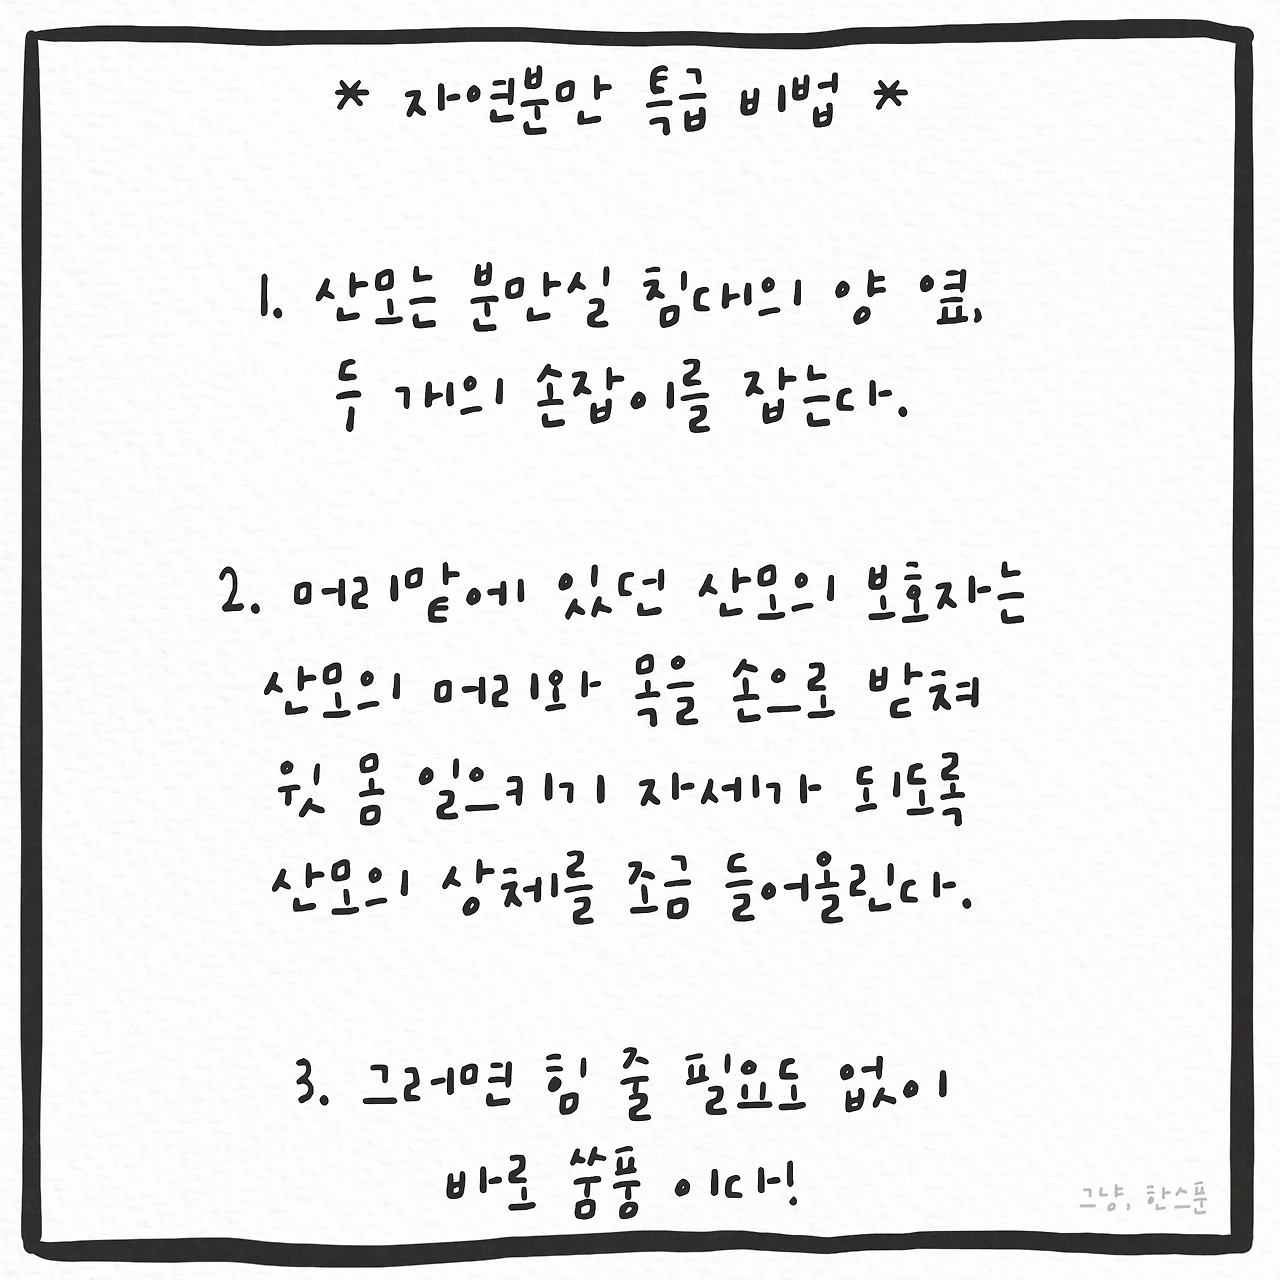 * 자연분만 특급 비법 *
1. 산모는 분만실 침대의 양 옆,
두 개의 손잡이를 잡는다.
2. 머리맡에 있던 산모의 보호자는
산모의 머리와 목을 손으로 받쳐
윗 몸 일으키기 자세가 되도록
산모의 상체를 조금 들어올린다.
3. 그러면 힘 줄 필요도 없이
바로 쑴풍 이다!
그냥, 한스푼